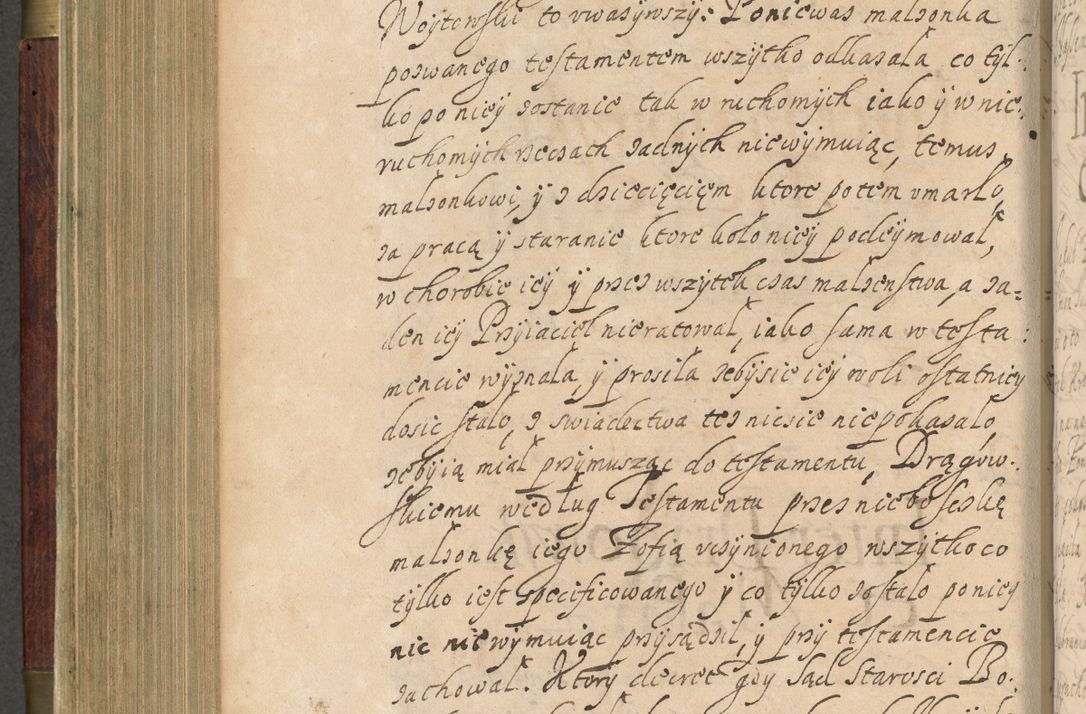 Woÿtowsku to vwasÿwszÿ: Poniewas malzonka
pozwanego testamentem wszÿtko odkazala co tÿl-
ko po nieÿ zostanie tak w ruchomÿch iako ÿ w nie:
ruchomÿch rzeczach zadnÿch niewÿmuiąc, temus
malzonkowi, ÿ z dziecięciem ktore potem vmarło,
za pracą ÿ staranie ktore koło nieÿ podeÿmował,
w chorobie ieÿ ÿ przez wszÿtek czas malzenstwa, a za=
den ieÿ Przÿiaciel nieratował, iako sama w testa:
mencie wÿznała, ÿ prosiła zebÿsie ieÿ woli ostatnieÿ
dosic stało, z swiadectwa tez niesie niepokazało
zebÿ ią miał przÿmuszac do testamentu, Drągow:
skiemu według Testamentu przez nieboszczkę
malzonkę iego Zofią vczÿnionego wszÿtko co
tÿlko iest specificowanego ÿ co tÿlko zostało po nieÿ
nic nie wÿmuiąc przÿsądził, ÿ przÿ testamencie
zachował. Ktorÿ decret gdÿ Sąd Starosci Bo: